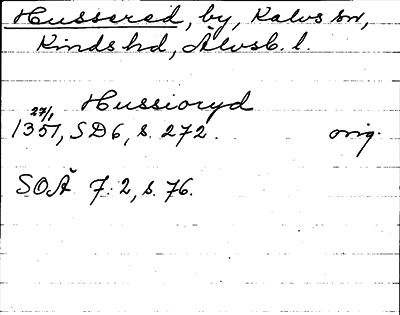 Hussered, by, Kalvs sn,
Kinds hd, Älvsb. l.
Hussioryd
27/1
1351, SD 6, s. 272. orig.
SOÄ 7:2, s. 76.